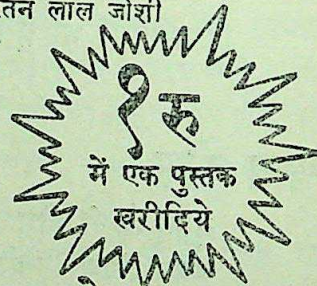 रतन लाल जोशी
१ रु
में एक पुस्तक
खरीदिये